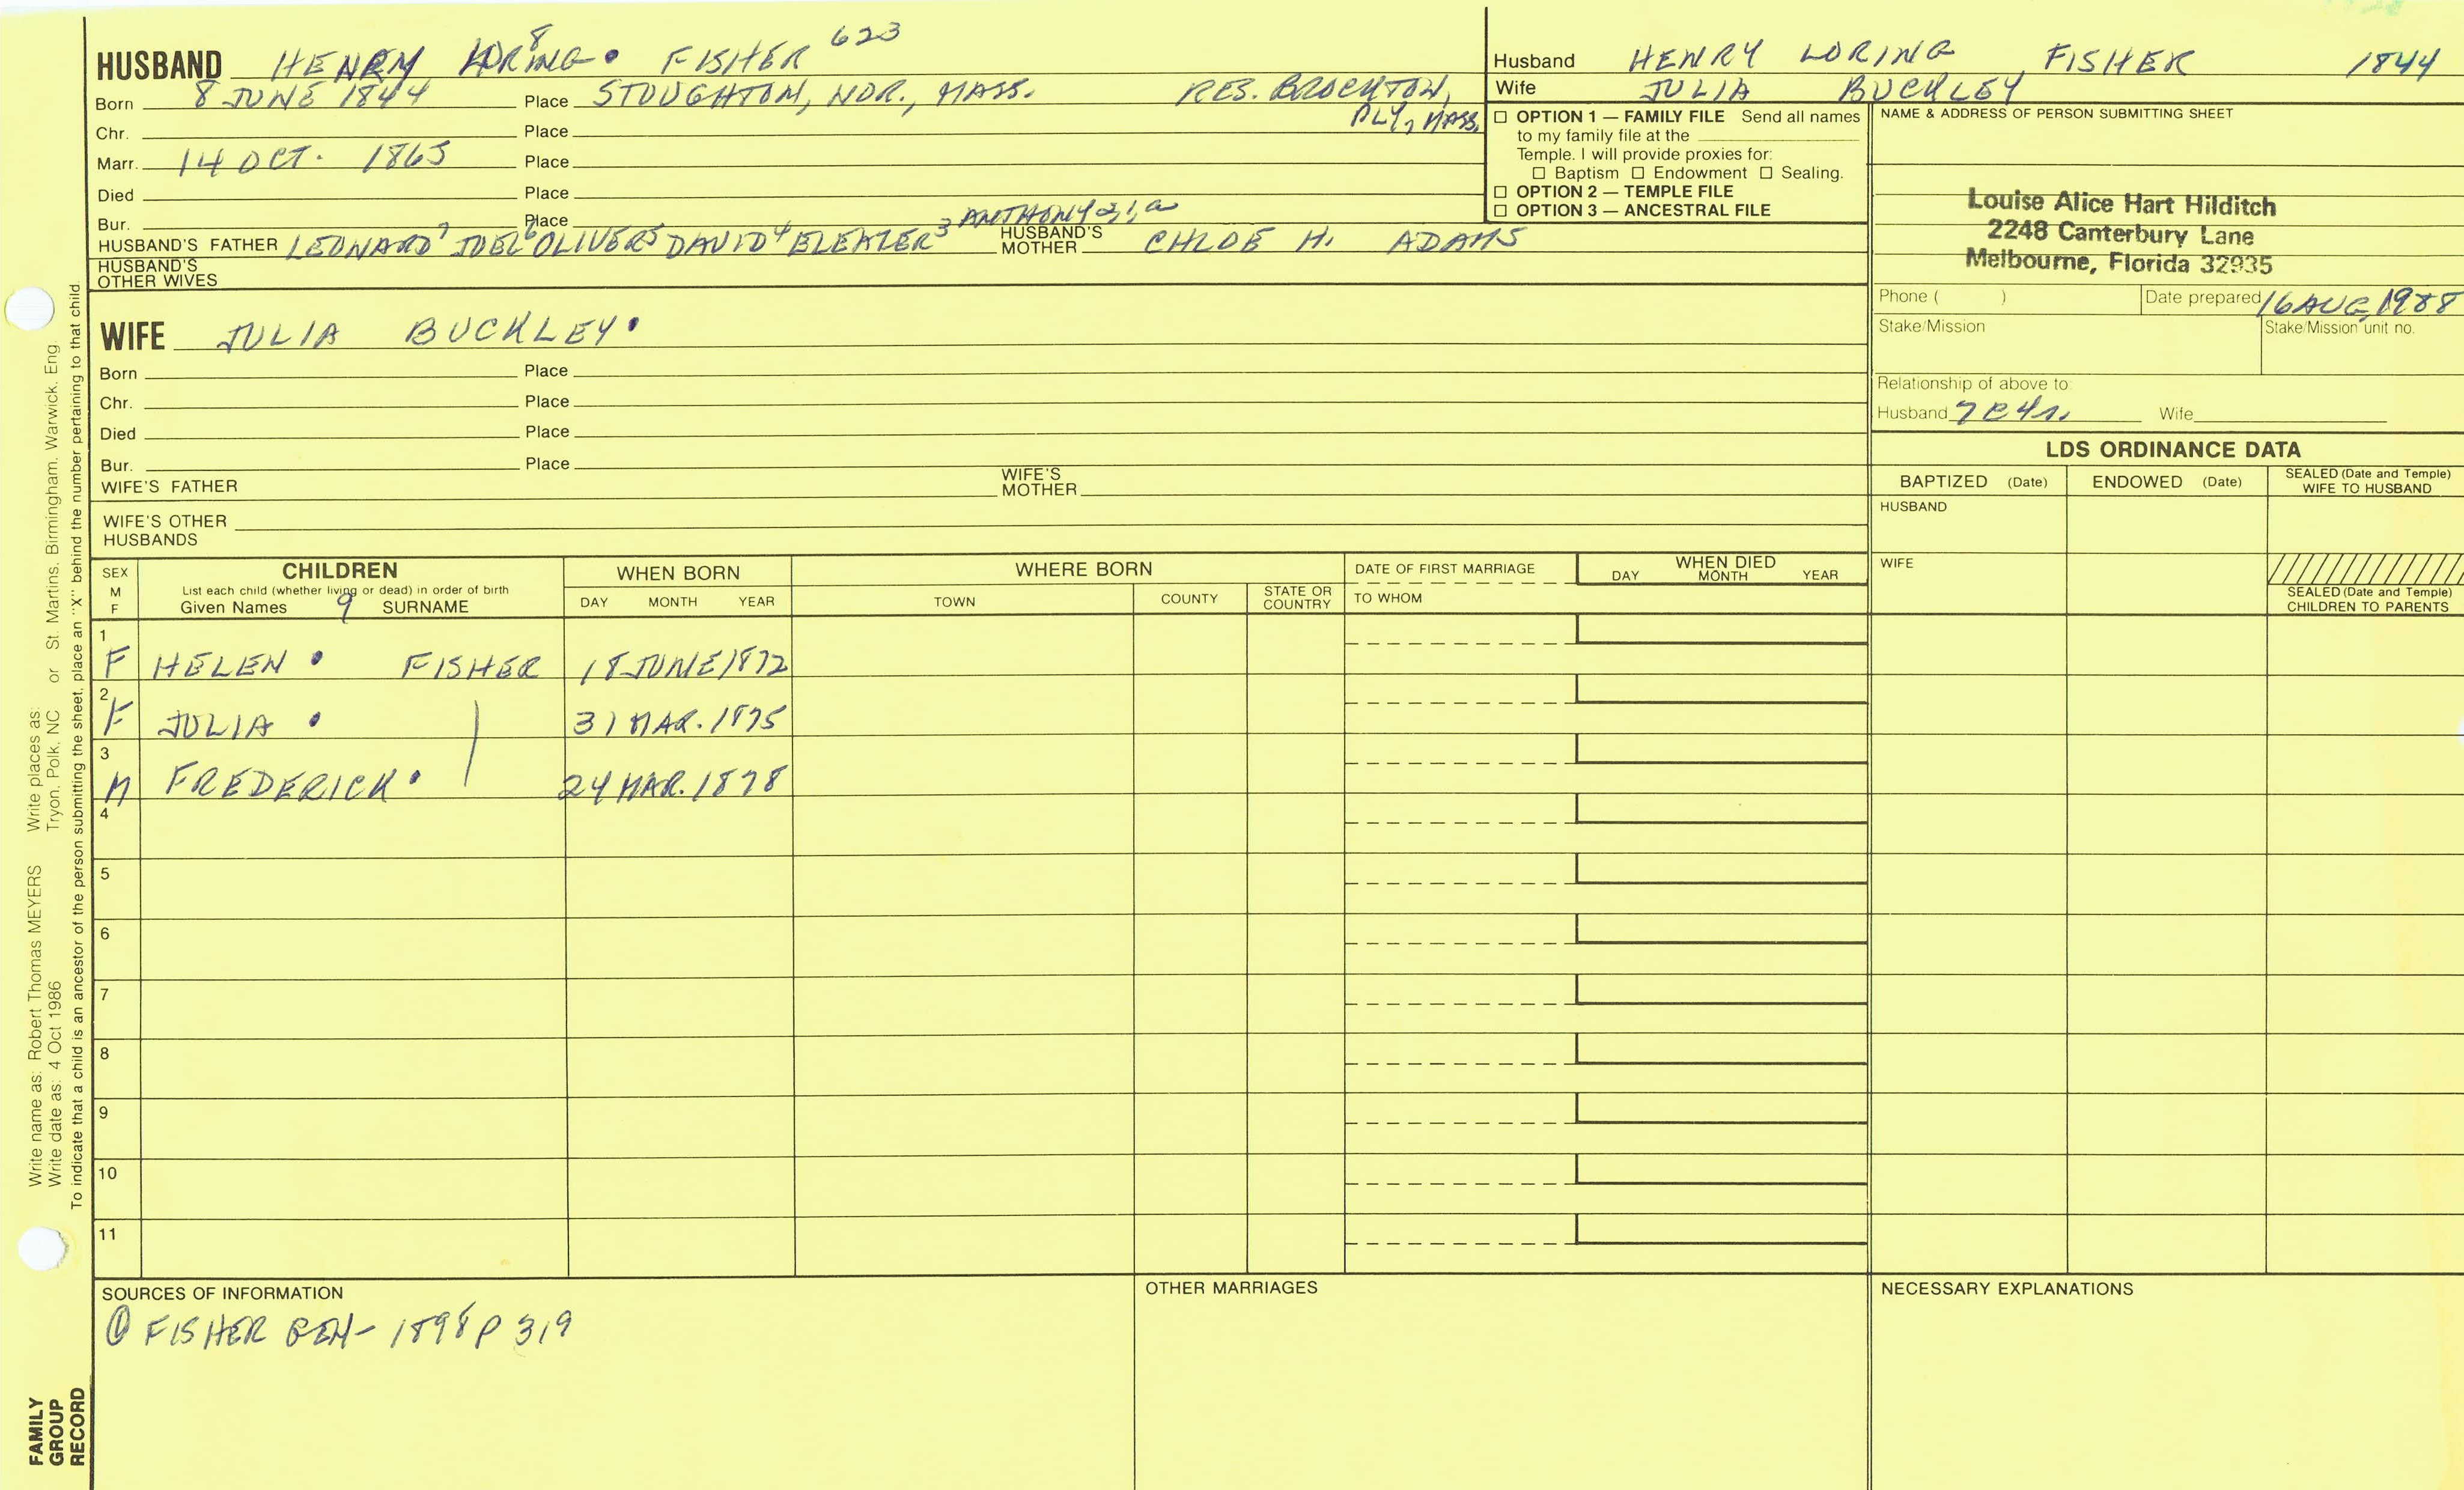 HUSBAND HENRY LORING 8 FISHER 623
Born 8 JUNE 1844 Place STOUGHTON, NOR., MASS. RES. BROCKTON, PLY, MASS.
Chr. Place
Marr. 14 OCT. 1865 Place
Died Place
Bur. Place
HUSBAND'S FATHER LEONARD 7 JOEL 6 OLIVER 5 DAVID 4 ELEAZER 3 ANTHONY 2,1,a HUSBAND'S MOTHER CHLOE H. ADAMS
HUSBAND'S OTHER WIVES
WIFE JULIA BUCKLEY
Born Place
Chr. Place
Died Place
Bur. Place
WIFE'S FATHER WIFE'S MOTHER
WIFE'S OTHER HUSBANDS
Husband HENRY LORING FISHER 1844
Wife JULIA BUCKLEY
☐ OPTION 1 — FAMILY FILE Send all names
to my family file at the
Temple. I will provide proxies for:
☐ Baptism ☐ Endowment ☐ Sealing.
☐ OPTION 2 — TEMPLE FILE
☐ OPTION 3 — ANCESTRAL FILE
NAME & ADDRESS OF PERSON SUBMITTING SHEET
Louise Alice Hart Hilditch
2248 Canterbury Lane
Melbourne, Florida 32935
Phone ( ) Date prepared 16 AUG 1988
Stake/Mission Stake/Mission unit no.
Relationship of above to
Husband 7C4r. Wife
LDS ORDINANCE DATA
BAPTIZED (Date) ENDOWED (Date) SEALED (Date and Temple) WIFE TO HUSBAND
HUSBAND
WIFE
SEALED (Date and Temple) CHILDREN TO PARENTS
SEX M F
CHILDREN
List each child (whether living or dead) in order of birth
Given Names 9 SURNAME
WHEN BORN
DAY MONTH YEAR
WHERE BORN
TOWN COUNTY STATE OR COUNTRY
DATE OF FIRST MARRIAGE
TO WHOM
WHEN DIED
DAY MONTH YEAR
1 F HELEN FISHER 18 JUNE 1872
2 F JULIA 31 MAR. 1875
3 M FREDERICK 24 MAR. 1878
4
5
6
7
8
9
10
11
SOURCES OF INFORMATION
① FISHER GEN- 1898 P 319
OTHER MARRIAGES
NECESSARY EXPLANATIONS
Write name as: Robert Thomas MEYERS Write places as:
Write date as: 4 Oct 1986 Tryon, Polk, NC or St. Martins, Birmingham, Warwick, Eng.
To indicate that a child is an ancestor of the person submitting the sheet, place an "X" behind the number pertaining to that child.
FAMILY
GROUP
RECORD